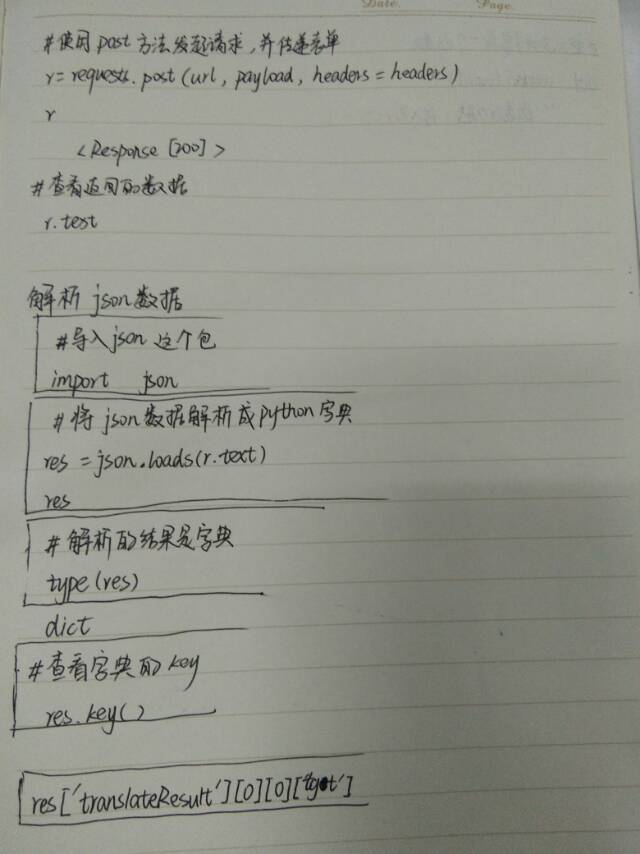 Date. Page.
#使用post方法发起请求,并传递表单
r=requests.post(url, payload, headers=headers)
r
<Response [200]>
#查看返回的数据
r.text
解析json数据
#导入json这个包
import json
#将json数据解析成python字典
res=json.loads(r.text)
res
#解析的结果是字典
type(res)
dict
#查看字典的key
res.key()
res['translateResult'][0][0]['tgt']